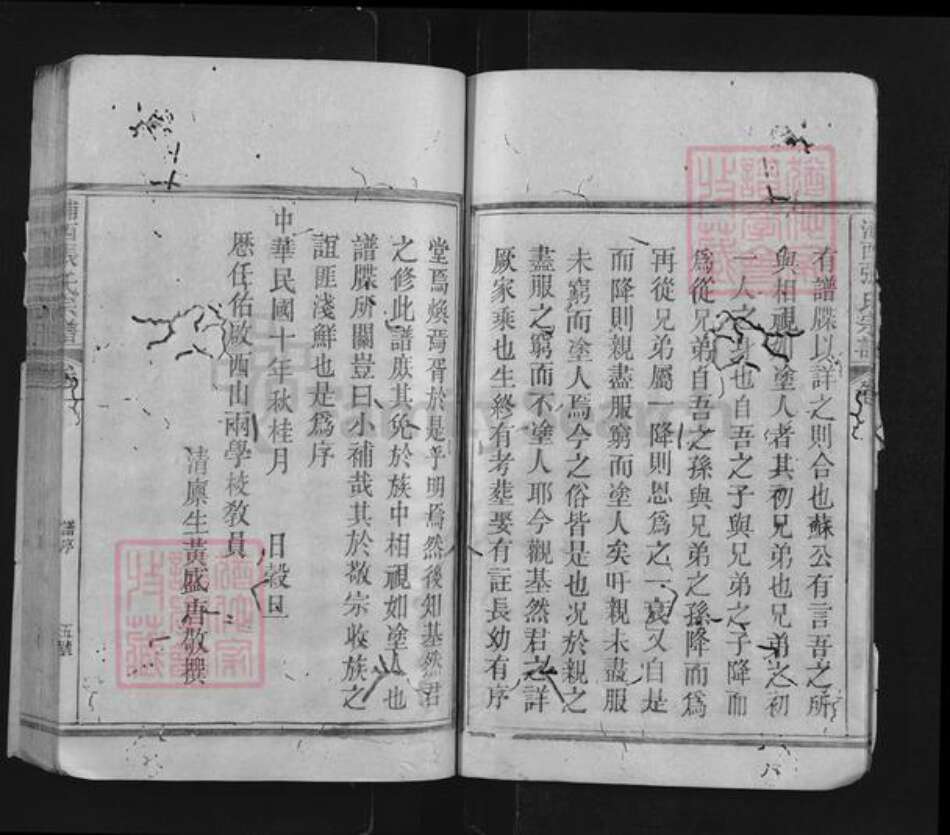 有譜牒以詳之則合也蘇公有言吾之所
與相視如塗人者其初兄弟也兄弟之初
一人之身也自吾之子與兄弟之子降而
為從兄弟自吾之孫與兄弟之孫降而為
再從兄弟屬一降則恩為之一衰又自是
而降則親盡服窮而塗人矣吁親未盡服
未窮而塗人焉今之俗皆是也况於親之
盡服之窮而不塗人耶今觀基然君之詳
厥家乘也生終有考塟娶有註長幼有序
堂焉煥焉胥於是乎明焉然後知基然君
之修此譜庶其免於族中相視如塗人也
譜牒所關豈曰小補哉其於敬宗收族之
誼匪淺鮮也是為序
中華民國十年秋桂月 日穀旦
歷任佑啟西山兩學校敎員
清廪生黃盛唐敬撰
浦西張氏宗譜
譜序
五